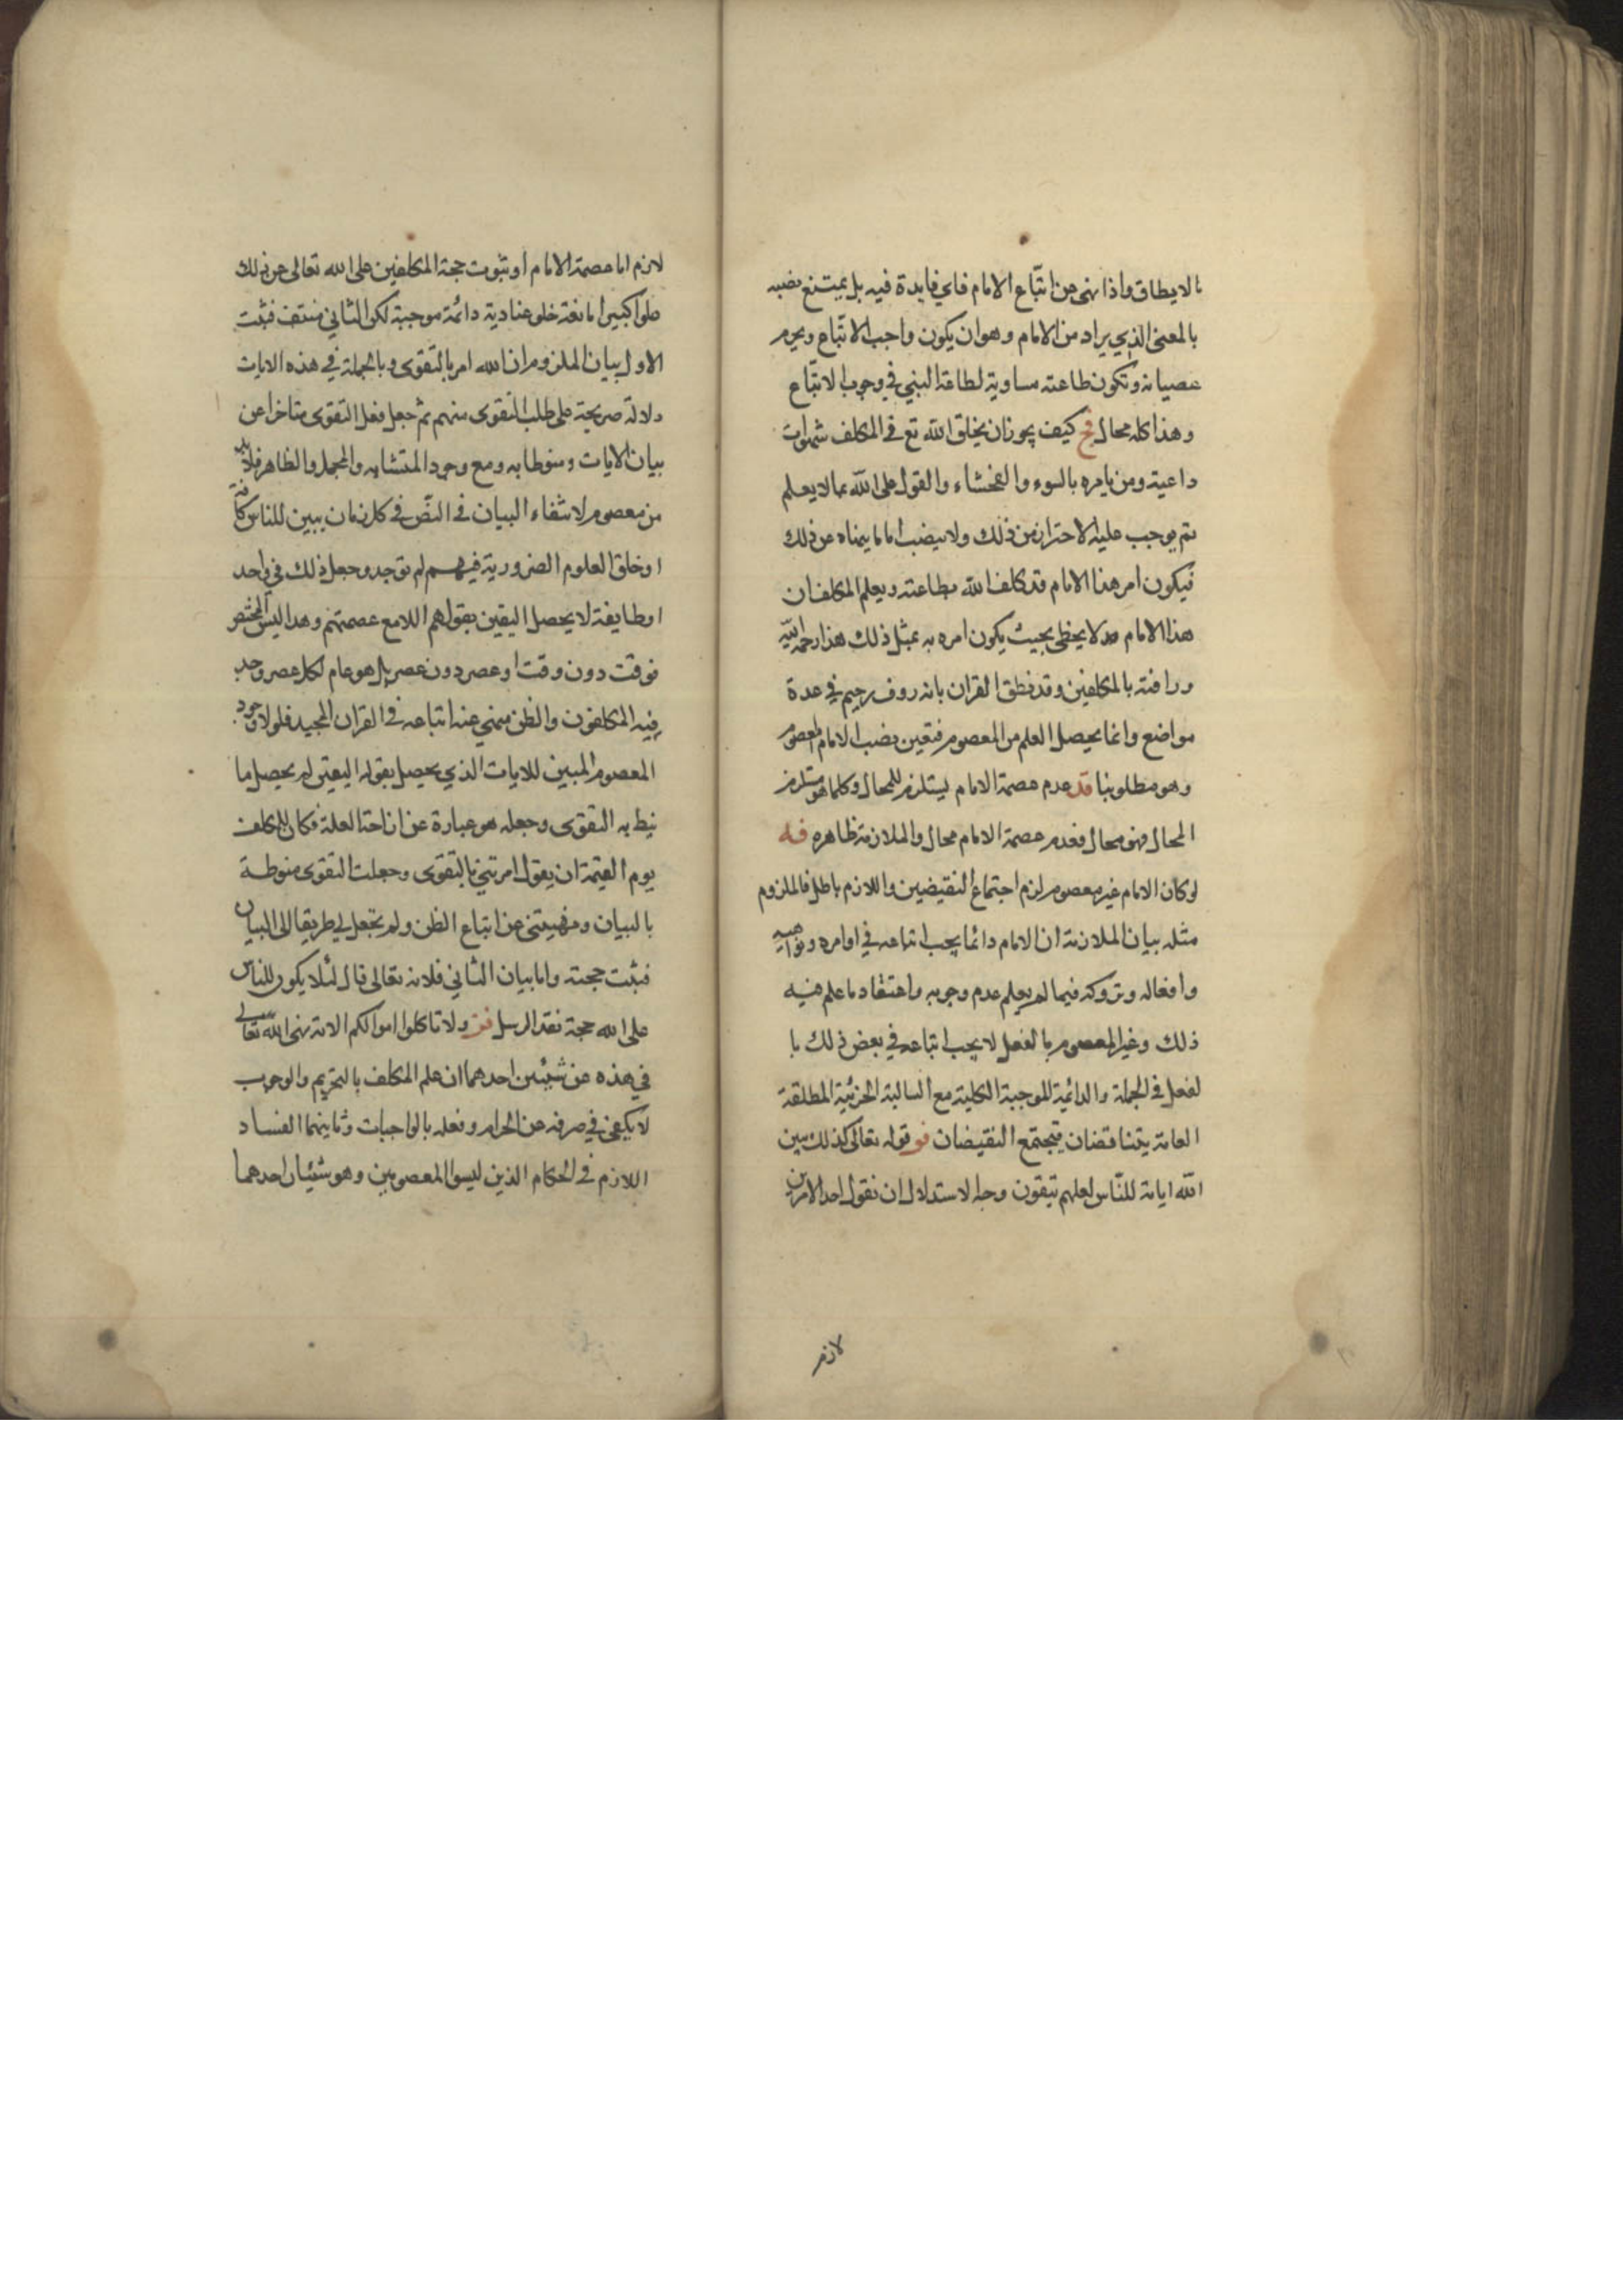 بالايطاق واذا نهى عن اتّباع الامام فاي فايدة فيه بل يمتنع نصبه
بالمعنى الذي يراد من الامام وهو ان يكون واجب الاتّباع ويحرم
عصيانه وتكون طاعته مساوية لطاعة النبي في وجوب الاتباع
وهذا كله محال فح كيف يجوز ان يخلق الله تع في المكلف شهوات
داعية ومن يامره بالسوء والفحشاء والقول على الله بما لا يعلم
ثم يوجب عليه الاحتراز من ذلك ولا ينصب اماما ينهاه عن ذلك
فيكون امر هذا الامام قد كلف الله بطاعته ويعلم المكلف ان
هذا الامام لا يخطي بحيث يكون امره به بمثل ذلك هذا رحمة الله
ورافته بالمكلفين وقد نطق القران بانه روف رحيم في عدة
مواضع وانما يحصل العلم من المعصوم فتعين نصب الامام المعصوم
وهو مطلوبنا قد عدم عصمة الامام يستلزم للمحال وكلما هو مستلزم
المحال فهو محال فعدم عصمة الامام محال والملازمة ظاهره فه
لو كان الامام غير معصوم لزم اجتماع النقيضين واللازم باطل فالملزوم
مثله بيان الملازمة ان الامام دائما يجب اتباعه في اوامره ونواهيه
وافعاله وتروكه فيما لم يعلم عدم وجوبه واعتقاد ما علم فيه
ذلك وغير المعصوم بالفعل لا يجب اتباعه في بعض ذلك با
لفعل في الجملة والدائمة الموجبة الكلية مع السالبة الجزئية المطلقة
العامة يتناقضان فيجتمع النقيضان فو قوله تعالى كذلك يبين
الله اياته للنّاس لعلهم يتقون وجه الاستدلال ان نقول احد الامرين
لازم
لازم اما عصمة الامام او ثبوت حجة المكلفين على الله تعالى عن ذلك
علوا كبيرا مانعة خلو عنادية دائمة موجبة لكن الثاني منتف فثبت
الاول بيان الملزوم ان الله امر بالتقوى وبالجملة في هذه الايات
دلالة صريحة على طلب التقوى منهم ثم جعل فعل التقوى متاخرا عن
بيان الايات ومنوطا به ومع وجود المتشابه والمجمل والظاهر فلا بد
من معصوم لانتفاء البيان في النصّ في كل زمان يبين للناس كافة
او خلق العلوم الضرورية فيهم لم توجد وجعل ذلك في واحد
او طايفة لا يحصل اليقين بقولهم الا مع عصمتهم وهذا ليس المختصر
فوقت دون وقت او عصر دون عصر بل هو عام لكل عصر وجد
فيه المكلفون والظن منهي عنه اتباعه في القران المجيد فلولا وجود
المعصوم المبين للايات الذي يحصل بقوله اليقين لم يحصل ما
نيط به التقوى وجعله هو عبارة عن ازاحة العلة فكان للمكلف
يوم القيمة ان يقول امرتني بالتقوى وجعلت التقوى منوطة
بالبيان ونهيتني عن اتباع الظن ولم تجعل لي طريقا الى البيان
فثبت حجته واما بيان الثاني فلانه تعالى قال لئلا يكون للناس
على الله حجة بعد الرسل فز ولا تاكلوا اموالكم الاية نهى الله تعالى
في هذه عن شيئين احدهما ان علم المكلف بالتحريم والوجوب
لا يكفي في صرفه عن الحرام وفعله بالواجبات وثانيهما الفساد
اللازم في الحكام الذين ليسوا المعصومين وهو شيئان احدهما